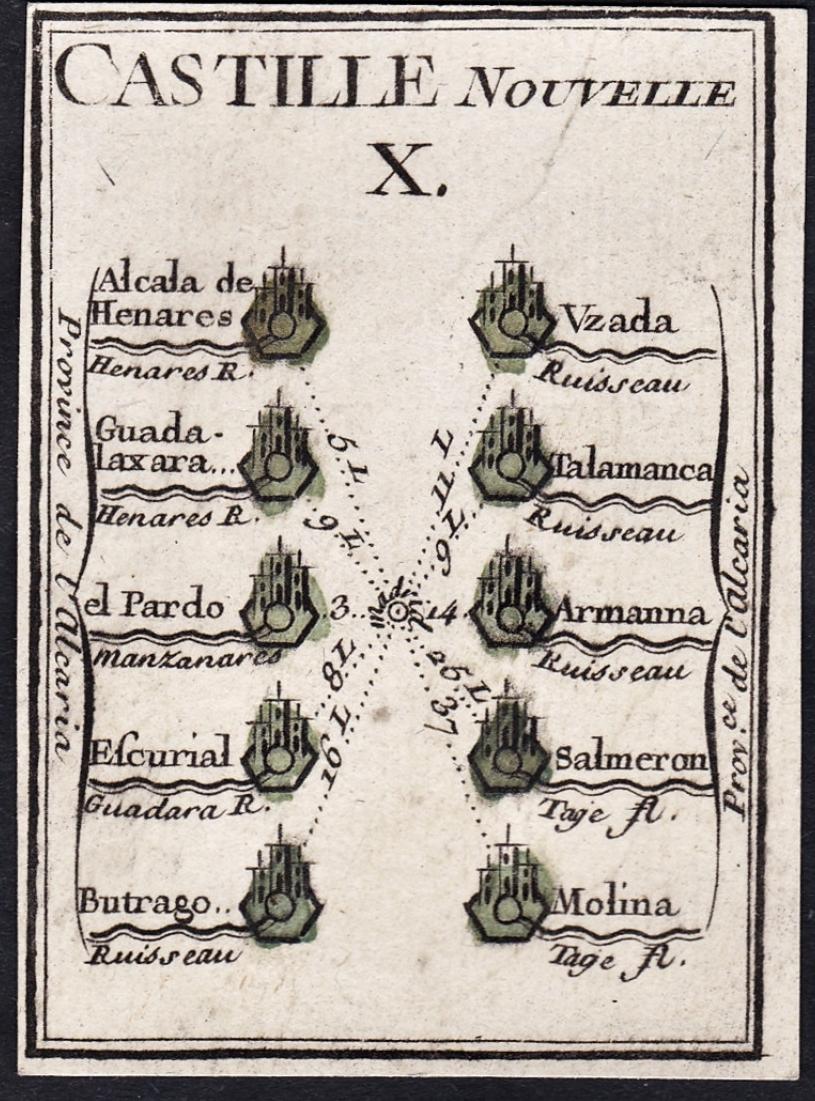 CASTILLE NOUVELLE
X.
Alcala de
Henares
Henares R.
Guada-
laxara...
Henares R.
el Pardo
Manzanares
Escurial
Guadara R.
Butrago..
Ruisseau
Province de l'Alcaria
5 L
9 L
3
8 L
16 L
Madri
11 L
9 L
14
25 L
37
Vzada
Ruisseau
Talamanca
Ruisseau
Armanna
Ruisseau
Salmeron
Tage fl.
Molina
Tage fl.
Prov.ce de l'alcaria